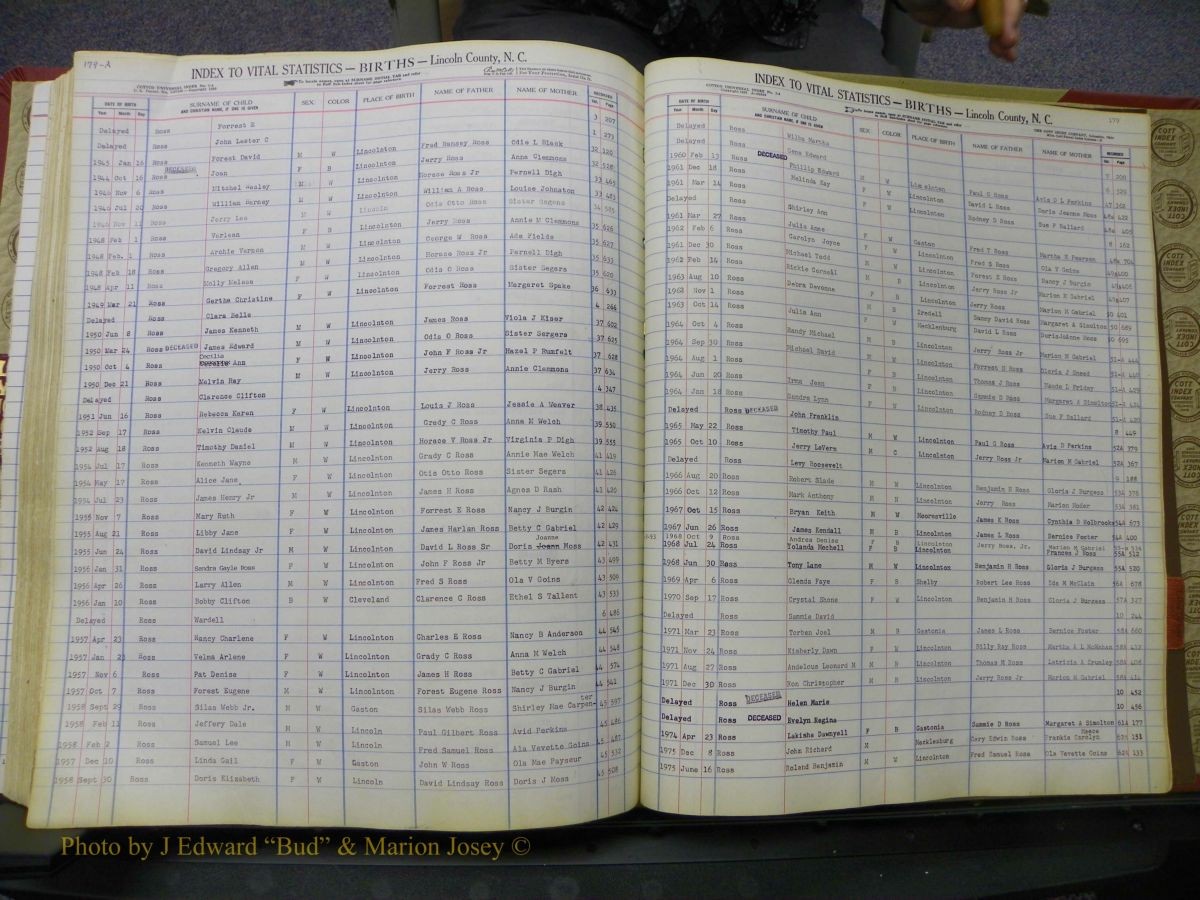 179-A
INDEX TO VITAL STATISTICS — BIRTHS — Lincoln County, N. C.
COTT UNIVERSAL INDEX
DATE OF BIRTH SURNAME OF CHILD SEX COLOR PLACE OF BIRTH NAME OF FATHER NAME OF MOTHER RECORDED
Year Month Day AND CHRISTIAN NAME, IF ONE IS GIVEN Vol. Page
Delayed Ross Forrest E 3 207
Delayed Ross John Lester C 1 273
1945 Jan 16 Ross Forest David M W Lincolnton Fred Ramsey Ross Odie L Black 32 120
1944 Oct 16 Ross DECEASED Joan F B Lincolnton Jerry Ross Anna Clemmons 32 528
1946 Nov 6 Ross Mitchel Wesley M W Lincolnton Horace Ross Jr Pernell Digh 33 465
1946 Jul 20 Ross William Barney M W Lincolnton William A Ross Louise Johnston 33 483
Ross Jerry Lee M W Lincoln Otis Otto Ross Sister Segens
1948 Feb 1 Ross Verlean F B Lincolnton Jerry Ross Annie M Clemmons 35 626
1948 Feb. 1 Ross Archie Vernon M W Lincolnton George W Ross Ada Fields 35 627
1948 Feb 18 Ross Gregory Allen M W Lincolnton Horace Ross Jr Pernell Digh 35 633
1948 Apr 11 Ross Molly Melssa F W Lincolnton Otis O Ross Sister Segers 35 620
1949 Mar 21 Ross Gertha Christine F W Lincolnton Forrest Ross Margaret Spake 36 433
Delayed Ross Clara Belle 4 266
1950 Jun 8 Ross James Kenneth M W Lincolnton James Ross Viola J Kiser 37 602
1950 Mar 24 Ross DECEASED James Edward M W Lincolnton Otis O Ross Sister Sergers 37 625
1950 Oct 4 Ross Cecilia Ann F W Lincolnton John F Ross Jr Hazel P Rumfelt 37 628
1950 Dec 21 Ross Melvin Ray M W Lincolnton Jerry Ross Annie Clemmons 37 634
Delayed Ross Clarence Clifton 4 347
1951 Jun 16 Ross Rebecca Karen F W Lincolnton Louis J Ross Jessie A Weaver 38 435
1952 Sep 17 Ross Kelvin Claude M W Lincolnton Grady C Ross Anna M Welch 39 550
1952 Aug 18 Ross Timothy Daniel M W Lincolnton Horace V Ross Jr Virginia P Digh 39 555
1954 Jul 17 Ross Kenneth Wayne M W Lincolnton Grady C Ross Annie Mae Welch 41 419
1954 May 17 Ross Alice Jane F W Lincolnton Otis Otto Ross Sister Segers 41 426
1954 Jul 23 Ross James Henry Jr M W Lincolnton James H Ross Agnes D Rash 41 420
1955 Nov 7 Ross Mary Ruth F W Lincolnton Forrest E Ross Nancy J Burgin 42 424
1955 Aug 21 Ross Libby Jane F W Lincolnton James Harlan Ross Betty C Gabriel 42 429
1955 Jun 24 Ross David Lindsay Jr M W Lincolnton David L Ross Sr Doris Joanne Moss 42 431
1956 Jan 31 Ross Sendra Gayle Ross F W Lincolnton John F Ross Jr Betty M Byers 43 499
1956 Apr 26 Ross Larry Allen M W Lincolnton Fred S Ross Ola V Goins 43 509
1956 Jan 10 Ross Bobby Clifton B W Cleveland Clarence C Ross Ethel S Tallent 43 533
Delayed Ross Wardell 6 486
1957 Apr 23 Ross Nancy Charlene F W Lincolnton Charles E Ross Nancy B Anderson 44 545
1957 Jan 23 Ross Velma Arlene F W Lincolnton Grady C Ross Anna M Welch 44 548
1957 Nov 6 Ross Pat Denise F W Lincolnton James H Ross Betty C Gabriel 44 574
1957 Oct 7 Ross Forest Eugene M W Lincolnton Forest Eugene Ross Nancy J Burgin 44 541
1958 Sept 29 Ross Silas Webb Jr. M W Gaston Silas Webb Ross Shirley Mae Carpenter 45 597
1958 Feb 11 Ross Jeffery Dale M W Lincoln Paul Gilbert Ross Avid Perkins 45 486
1958 Feb 2 Ross Samuel Lee M W Lincoln Fred Samuel Ross Ala Vevette Goins 45 487
1957 Dec 10 Ross Linda Gail F W Gaston John W Ross Ola Mae Payseur 45 532
1958 Sept 30 Ross Doris Elizabeth F W Lincoln David Lindsay Ross Doris J Moss 45 508
179
INDEX TO VITAL STATISTICS — BIRTHS — Lincoln County, N. C.
DATE OF BIRTH SURNAME OF CHILD SEX COLOR PLACE OF BIRTH NAME OF FATHER NAME OF MOTHER RECORDED
Year Month Day AND CHRISTIAN NAME, IF ONE IS GIVEN Vol. Page
Delayed Ross Wilba Martha 7 200
Delayed Ross DECEASED Gene Edward 8 329
1960 Feb 13 Ross Phillip Edward M W Lincolnton Paul G Ross Avis D L Perkins 47 362
1961 Dec 18 Ross Melinda Kay F W Lincolnton David L Ross Doris Jeanne Moss 48a 422
1961 Mar 14 Ross Lincolnton Rodney D Ross Sue P Ballard 48a 405
Delayed Ross Shirley Ann 8 162
1961 Mar 27 Ross Julia Anne F W Gaston Fred T Ross Martha H Pearson 48a 704
1962 Feb 6 Ross Carolyn Joyce F W Lincolnton Fred S Ross Ola V Goins 49a400
1961 Dec 30 Ross Michael Todd Lincolnton Forest E Ross Nancy J Burgin 49a406
1962 Feb 14 Ross Rickie Cornell M B Lincolnton Jerry Ross Jr Marion M Gabriel 49a407
1963 Aug 10 Ross Debra Devonne F B Lincolnton Jerry Ross Marion M Gabriel 50 401
1962 Nov 1 Ross Iredell Nancy David Ross Margaret A Simolton 50 689
1963 Oct 14 Ross Julia Ann F W Mecklenburg David L Ross 50 695
1964 Oct 4 Ross Randy Michael M B Lincolnton Jerry Ross Jr Marion M Gabriel
1964 Sep 30 Ross Michael David M W Lincolnton Forrest E Ross Gloria J Sneed
1964 Aug 1 Ross Lincolnton Thomas J Ross Maude L Friday
1964 Jun 20 Ross Irma Jean F B Lincolnton Sammie D Ross Margaret A Simolton
1964 Jan 18 Ross Sandra Lynn F W Lincolnton Rodney D Ross Sue P Ballard
Delayed Ross DECEASED John Franklin 8 449
1965 May 22 Ross Timothy Paul M W Lincolnton Paul G Ross Avis D Perkins 52A 379
1965 Oct 10 Ross Jerry LeVern M C Lincolnton Jerry Ross Jr Marion M Gabriel 52A 367
Delayed Ross Levy Roosevelt 9 188
1966 Aug 20 Ross Robert Slade M W Lincolnton Benjamin H Ross Gloria J Burgess 53A 378
1966 Oct 12 Ross Mark Anthony M N Lincolnton Jerry Ross Marion Moder 53A 381
1967 Oct 15 Ross Bryan Keith M W Mooresville James K Ross Cynthia D Holbrooks 54A 673
1967 Jun 26 Ross James Kendall M B Lincolnton James L Ross Bernice Foster 54A 400
1968 Oct 9 Ross Andrea Denise F B Lincolnton Jerry Ross, Jr. Marion M Gabriel
1968 Jul 24 Ross Yolanda Mechell F B Lincolnton Frances J Ross 55A 512
1968 Jun 30 Ross Tony Lane M W Lincolnton Benjamin H Ross Gloria J Burgess 55A 520
1969 Apr 6 Ross Glenda Faye F B Shelby Robert Lee Ross Ida M McClain 56A 678
1970 Sep 17 Ross Crystal Shone F W Lincolnton Benjamin H Ross Gloria J Burgess 57A 327
Delayed Ross Sammie David 10 244
1971 Mar 23 Ross Torben Joel M B Gastonia James L Ross Bernice Foster 58A 660
1971 Nov 24 Ross Kimberly Dawn F W Lincolnton Billy Ray Ross Martha A L McMahan 58A 433
1971 Aug 27 Ross Andelous Leonard M M B Lincolnton Thomas M Ross Latricia A Crumley 58A 406
1971 Dec 30 Ross Ron Christopher M B Lincolnton Jerry Ross Jr Marion M Gabriel 58A 411
Delayed Ross DECEASED Helen Marie 10 452
Delayed Ross DECEASED Evelyn Regina 10 456
1974 Apr 23 Ross Lakisha Dawnyell F B Gastonia Sammie D Ross Margaret A Simolton 61A 177
1975 Dec 8 Ross John Richard M Mecklenburg Gary Edwin Ross Frankie Carolyn Reece 62A 151
1975 June 16 Ross Roland Benjamin M W Lincolnton Fred Samuel Ross Ola Vevette Goins 62A 133
COTT INDEX COMPANY
Photo by J Edward “Bud” & Marion Josey ©